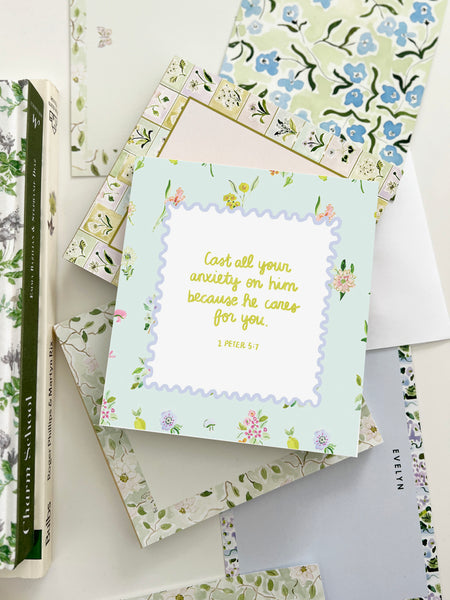 Cast all your
anxiety on him
because he cares
for you.
1 PETER 5:7
EVELYN
Charm School
EMMA BAZILIAN & STEPHANIE DIAZ
Roger Phillips & Martyn Rix
Bulbs